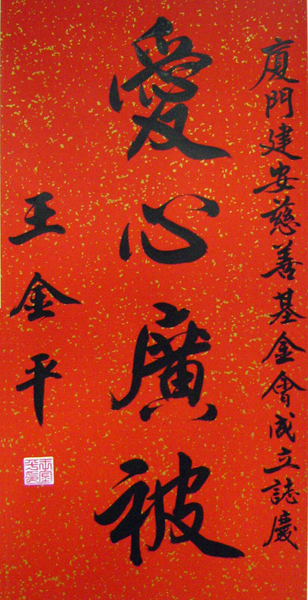 廈門建安慈善基金會成立誌慶
愛心廣被
王金平